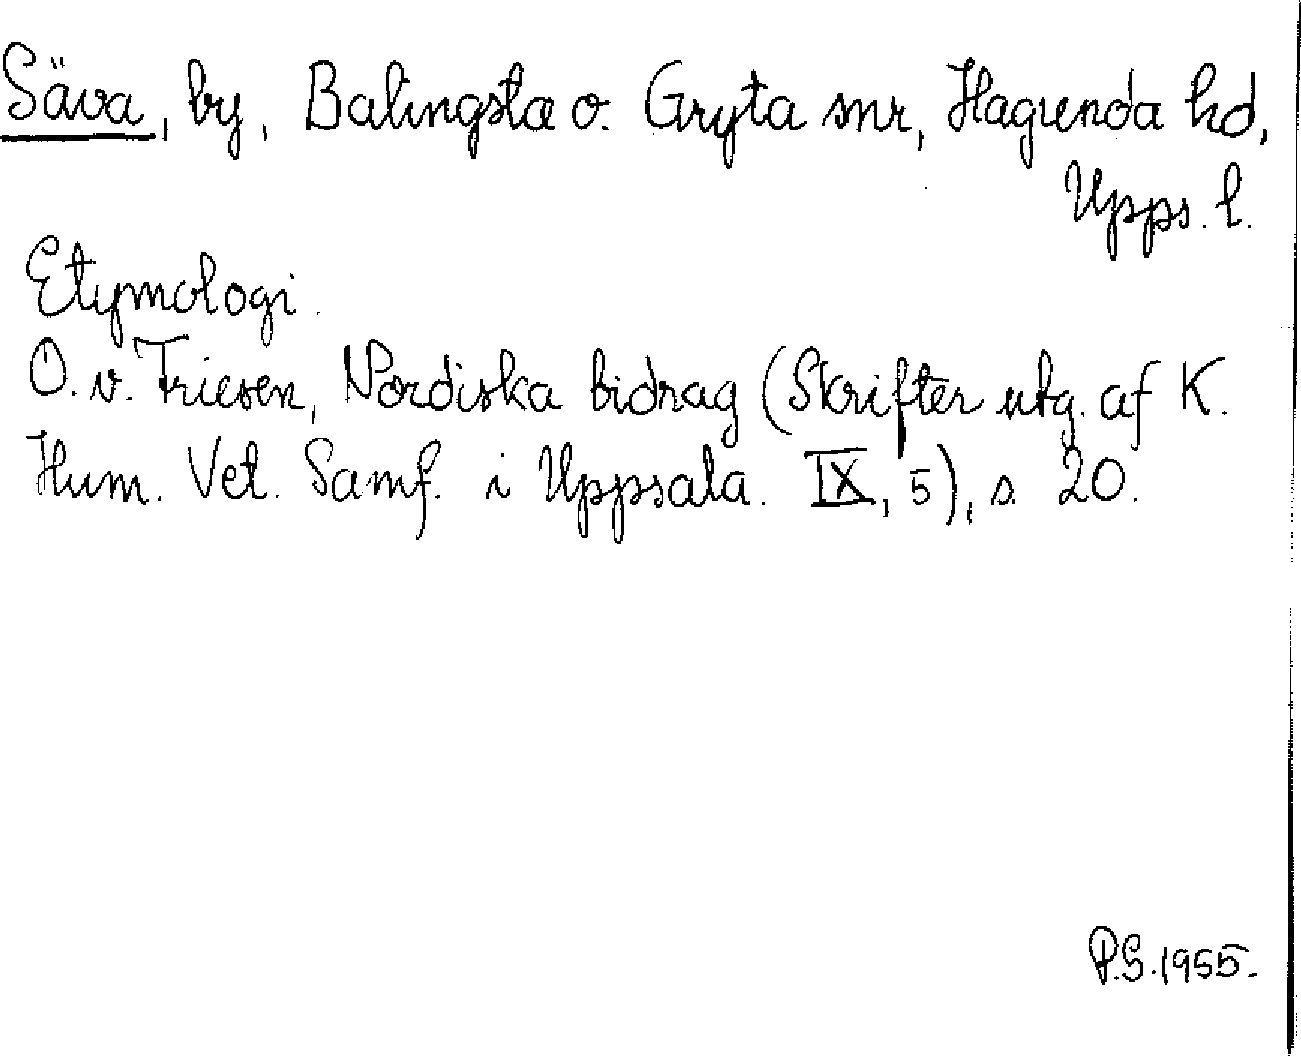 Säva, by, Balingsta o. Gryta snr, Hagunda hd,
Upps. l.
Etymologi.
O. v. Friesen, Nordiska bidrag (Skrifter utg. af K.
Hum. Vet. Samf. i Uppsala. IX, 5), s. 20.
P.S. 1955.